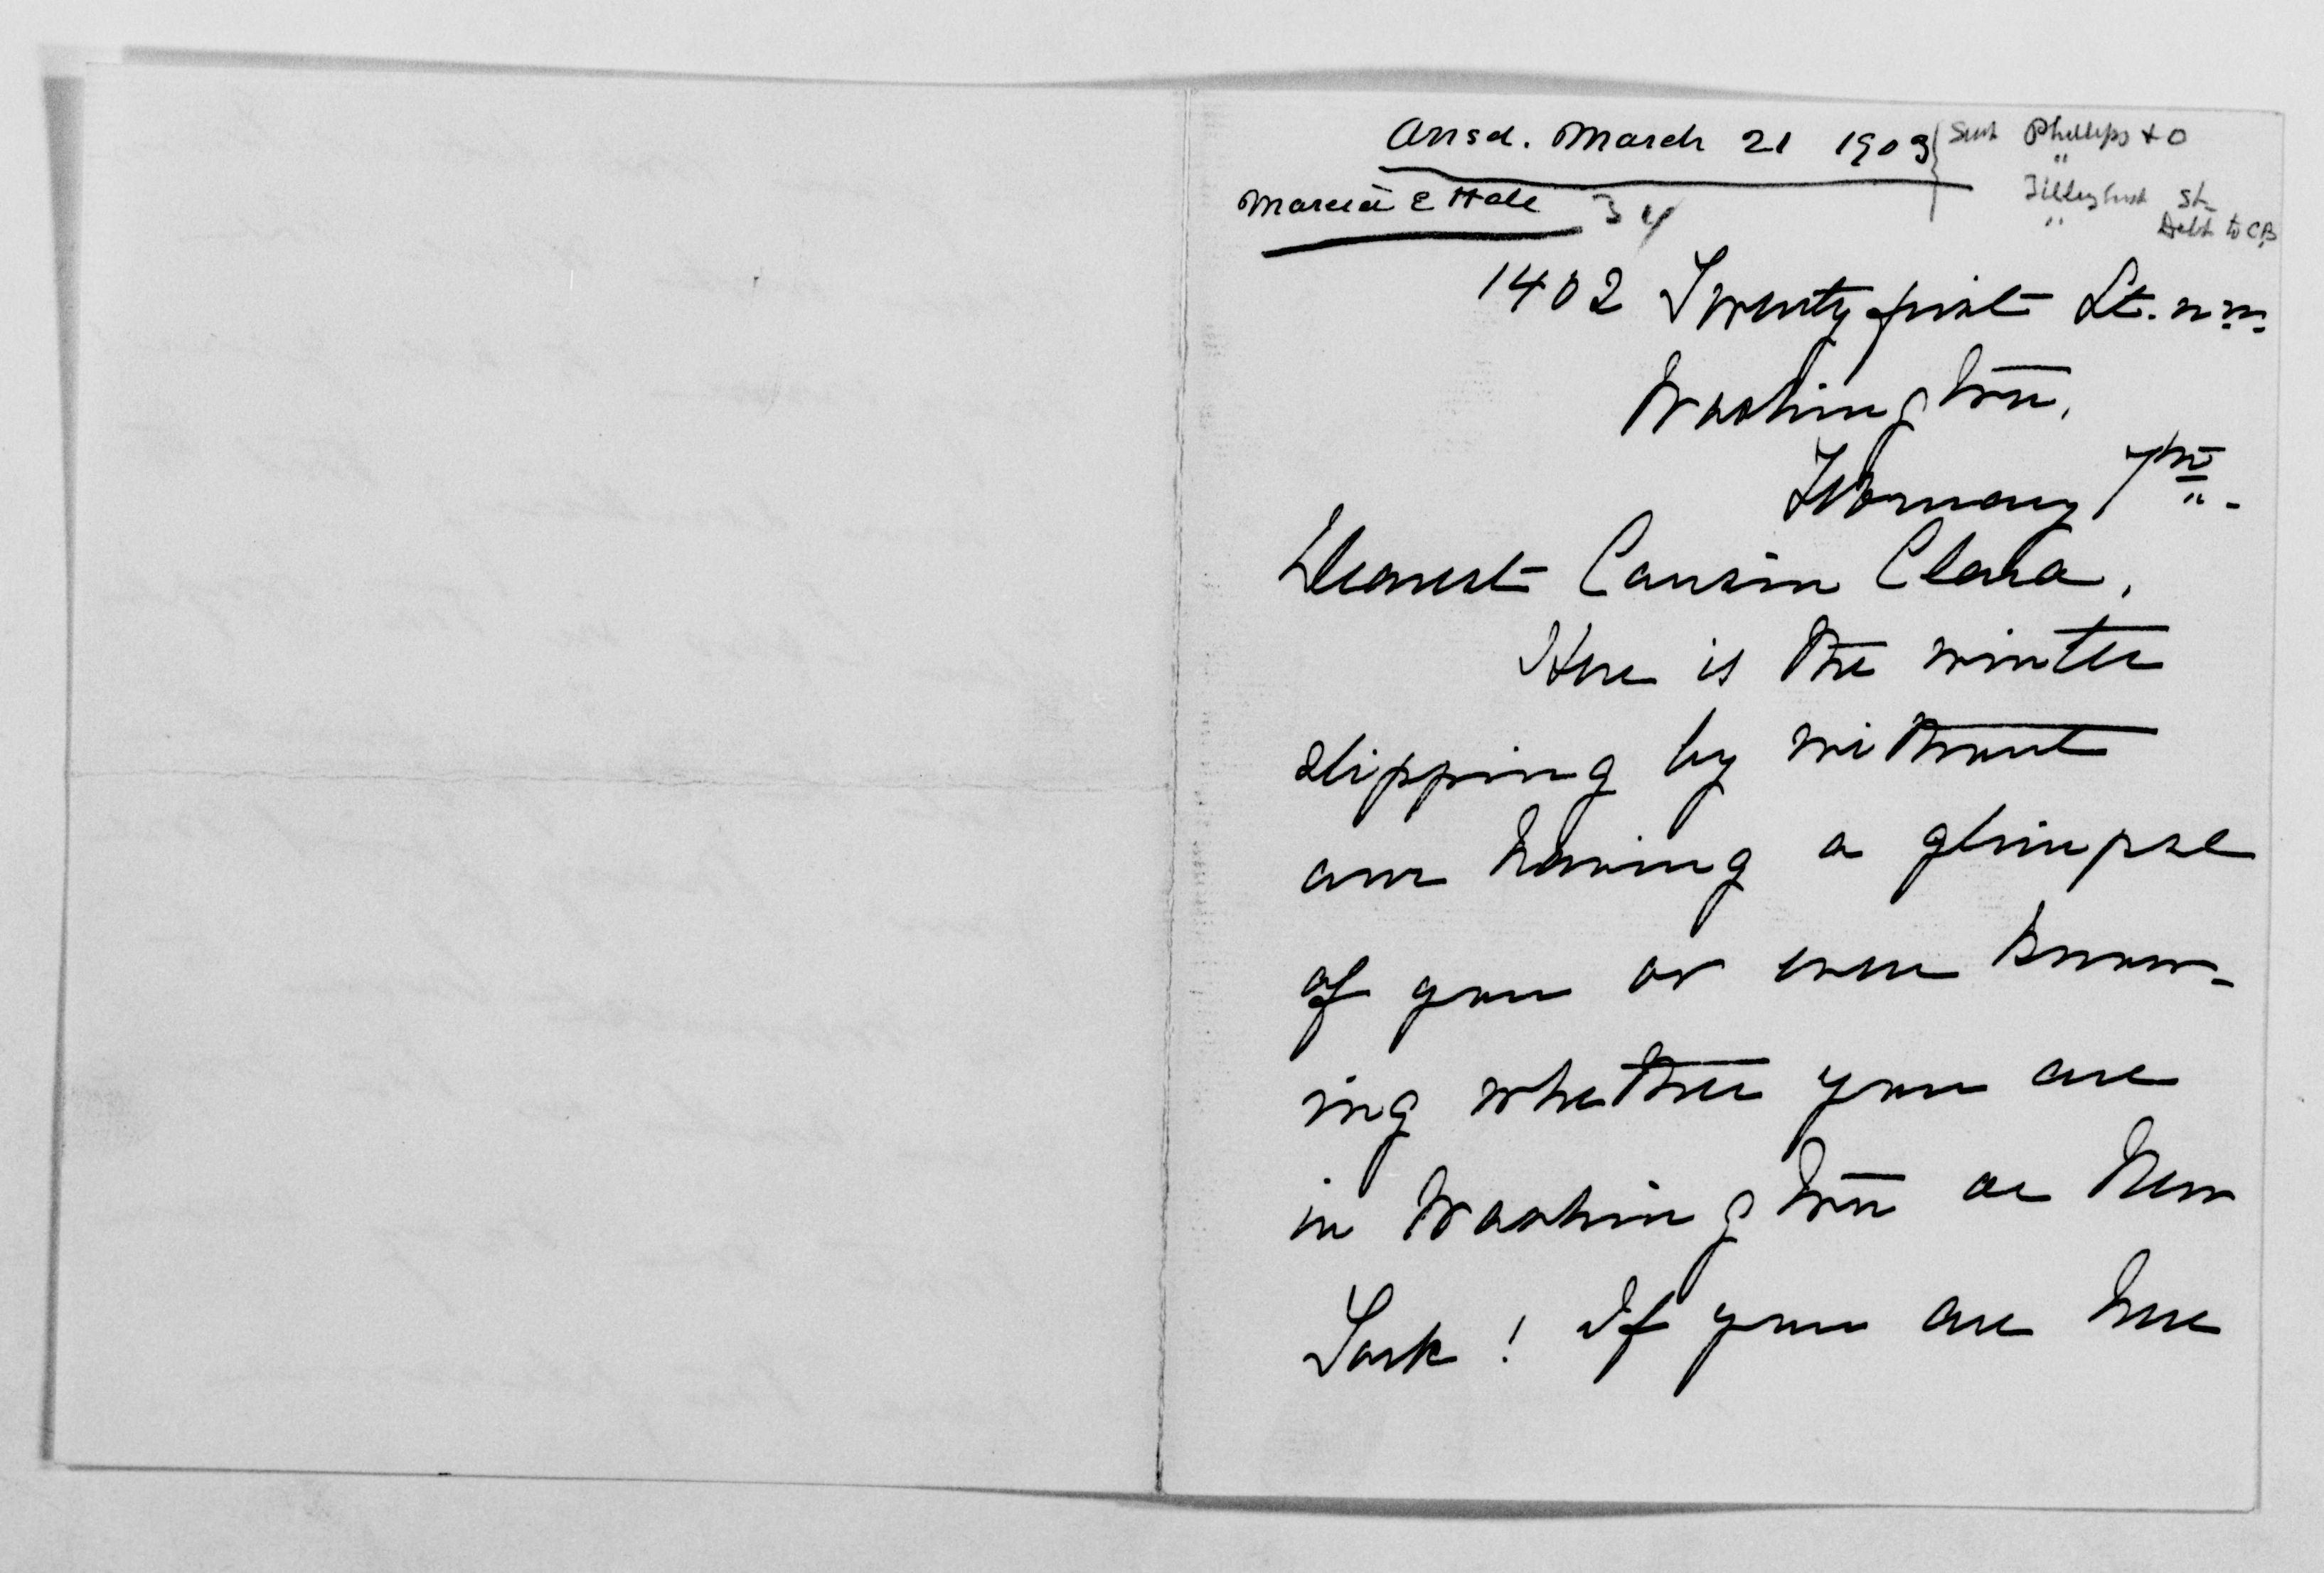 Ansd. March 21 1903 { Sent Phillips & O
"
Marcia E Hale 34 st
" Debt to CB
1402 Twenty first St. n.w.
Washington,
February 7th.
Dearest Cousin Clara,
Here is the winter
slipping by without
our having a glimpse
of you or even know-
ing whether you are
in Washington or New
York! If you are here